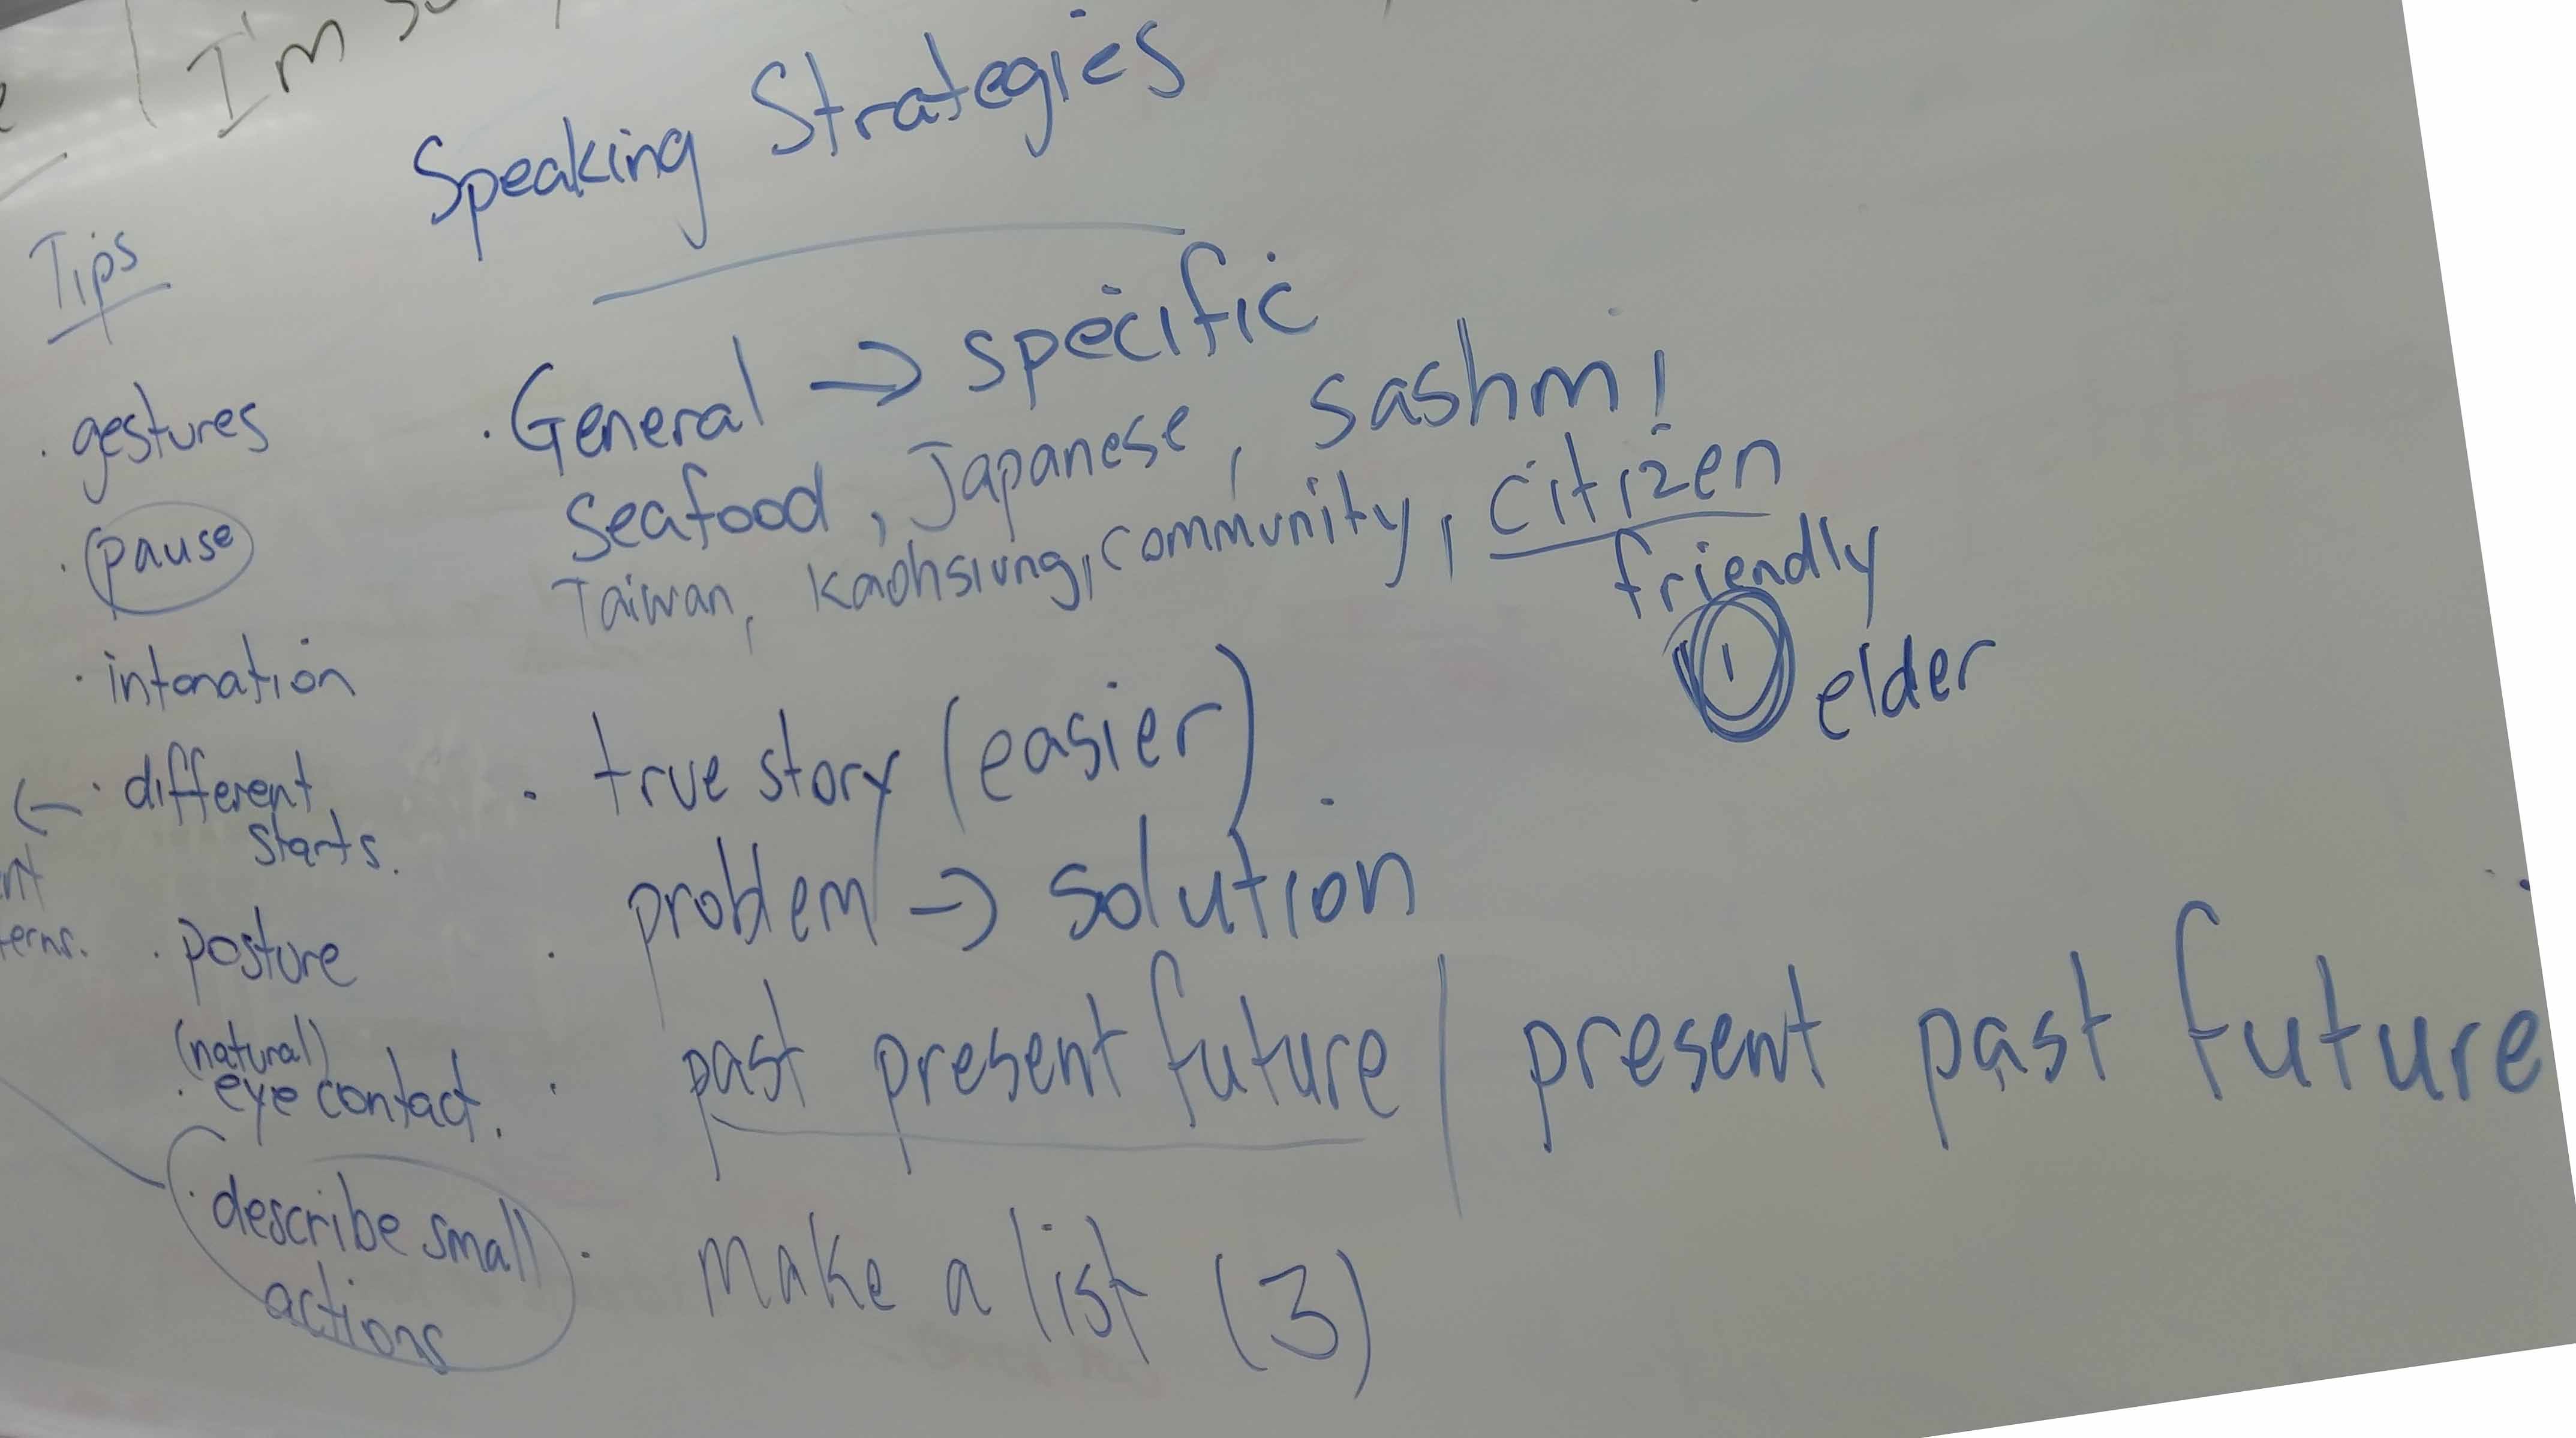 I'm
Speaking Strategies
Tips
· gestures
· pause
· intonation
← · different
starts.
· posture
(natural)
· eye contact.
· describe small
actions
· General → specific
Seafood, Japanese, sashimi
Taiwan, Kaohsiung, community, citizen
friendly
1 elder
· true story (easier)
· problem → solution
· past present future | present past future
· make a list (3)